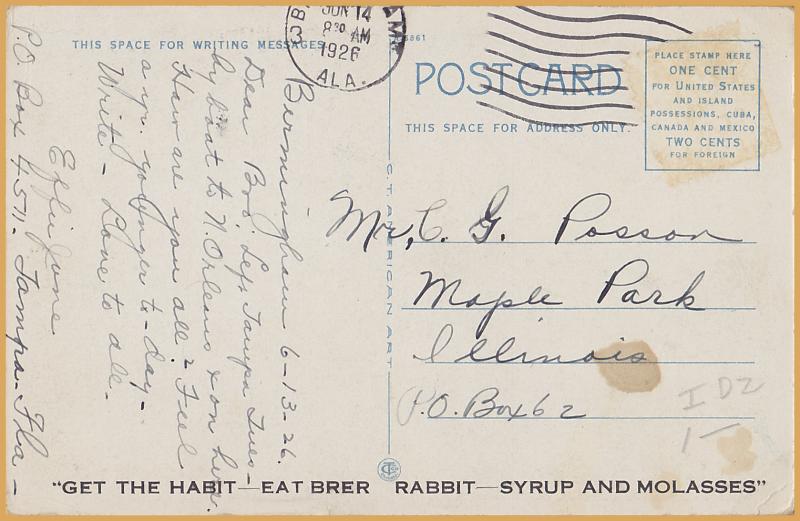 THIS SPACE FOR WRITING MESSAGES
Birmingham 6-13-26.
Dear Bro; Left Tampa Tues-
by boat to N. Orleans & on here.
How are you all? Feel
a yr. younger to-day-
Write - Love to all.
Effie June
P.O. Box 4511- Tampa-Fla-
JUN 14
8 30 AM
1926
ALA.
POST CARD
THIS SPACE FOR ADDRESS ONLY.
PLACE STAMP HERE
ONE CENT
FOR UNITED STATES
AND ISLAND
POSSESSIONS, CUBA,
CANADA AND MEXICO
TWO CENTS
FOR FOREIGN
C.T. AMERICAN ART
Mr. C. G. Posson
Maple Park
Illinois
P.O. Box 62
I D2
1-
"GET THE HABIT—EAT BRER RABBIT—SYRUP AND MOLASSES"